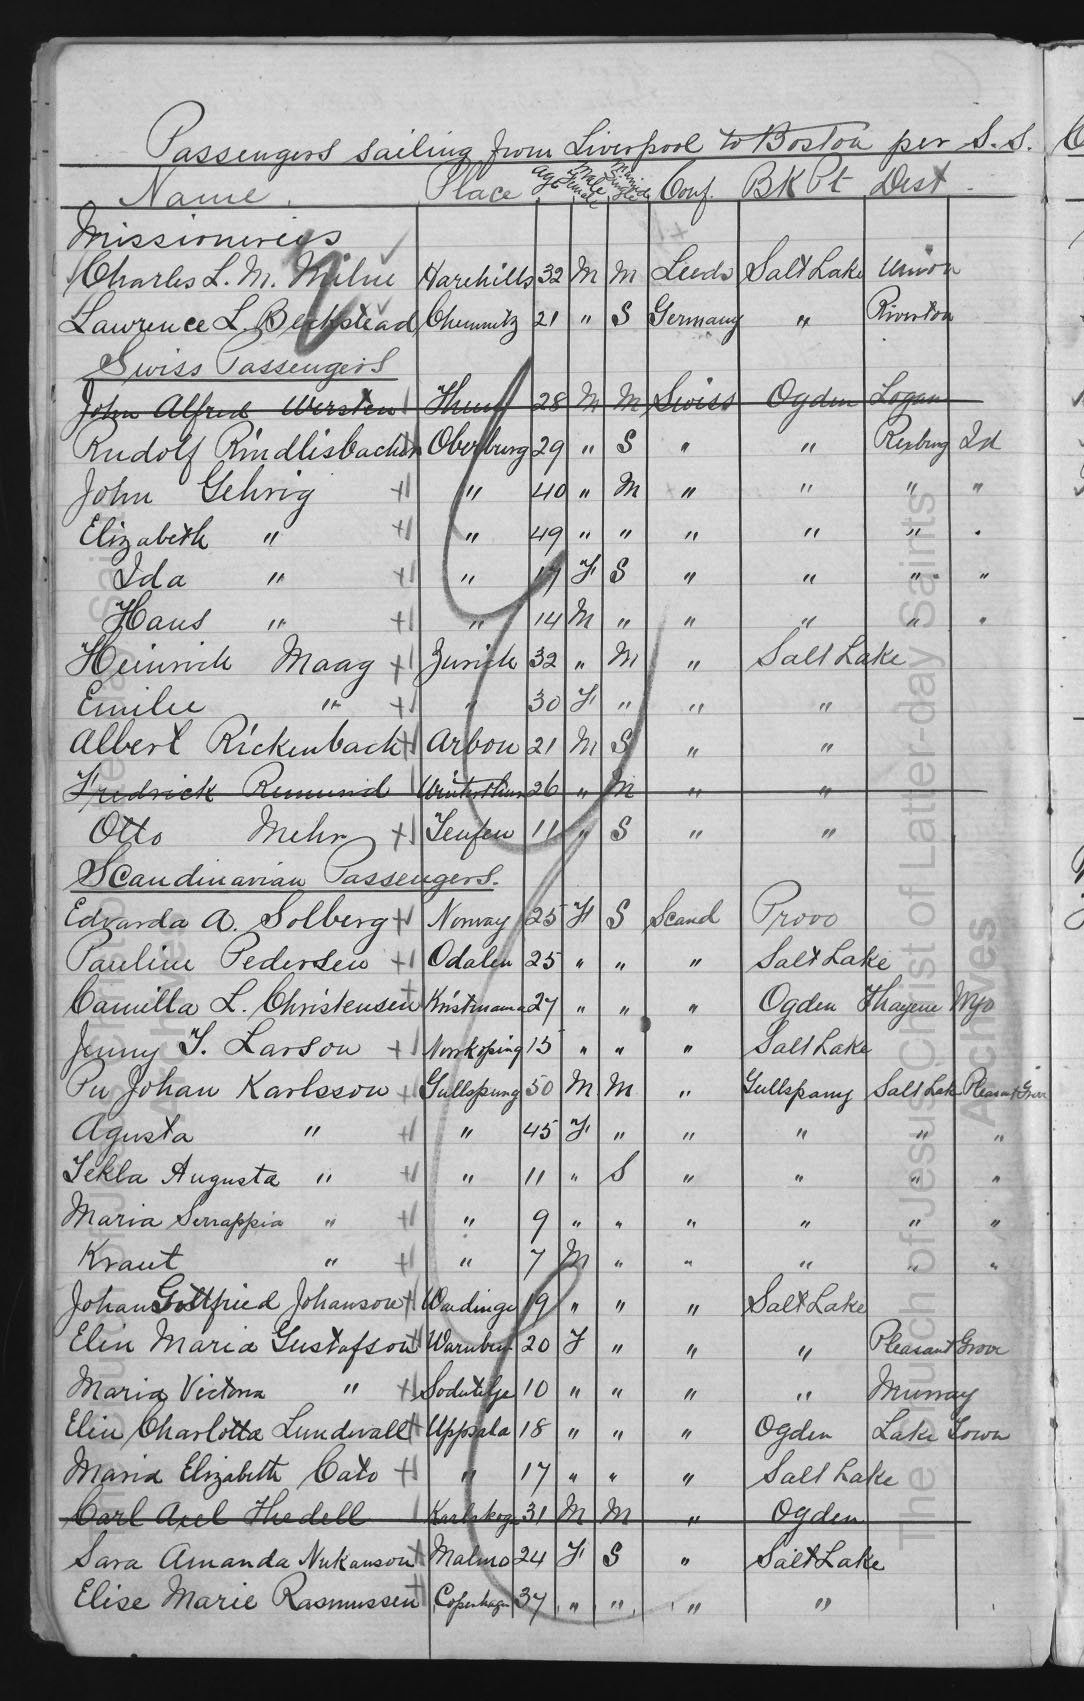 Passengers sailing from Liverpool to Boston per S.S.
Name. Place Age Male Female Married Single Conf. BK Pt Dest.
Missionaries
Charles L. M. Milne Harehills 32 M M Leeds Salt Lake Union
Lawrence L. Beckstead Chemnitz 21 " S Germany " Riverton
Swiss Passengers
John Alfred Wersten Thun 28 M M Swiss Ogden Logan
Rudolf Rindlisbacher Oberburg 29 " S " " Rexburg Id
John Gehrig " 40 " M " " " "
Elizabeth " " 49 " " " " " "
Ida " " 17 F S " " " "
Hans " " 14 M " " " " "
Heinrich Maag Zurich 32 " M " Salt Lake
Emilie " " 30 F " " "
Albert Rickenbach Arbon 21 M S " "
Fredrick Remund Winterthur 26 " M " "
Otto Mehr Teufen 11 " S " "
Scandinavian Passengers.
Edvarda A. Solberg Norway 25 F S Scand Provo
Pauline Pedersen Odalen 25 " " " Salt Lake
Camilla L. Christensen Kristiania 27 " " " Ogden Thayne Wyo
Jenny T. Larson Norrkoping 15 " " " Salt Lake
Per Johan Karlsson Gullspang 50 M M " Gullspang Salt Lake Pleasant Grove
Agusta " " 45 F " " " " "
Tekla Augusta " " 11 " S " " " "
Maria Serrappia " " 9 " " " " " "
Kraut " " 7 M " " " " "
Johan Gottfried Johanson 19 " " " Salt Lake
Elin Maria Gustafson 20 F " " " Pleasant Grove
Maria Victoria " 10 " " " " Murray
Elin Charlotta Lundvall Uppsala 18 " " " Ogden Lake Town
Maria Elizabeth Cato " 17 " " " Salt Lake
Carl Axel Thedell Karlskoga 31 M M " Ogden
Sara Amanda Malmo 24 F S " Salt Lake
Elise Marie Rasmussen Copenhagen 37 " " " "
The Church of Jesus Christ of Latter-day Saints
Archives
The Church of Jesus Christ of Latter-day Saints
Archives